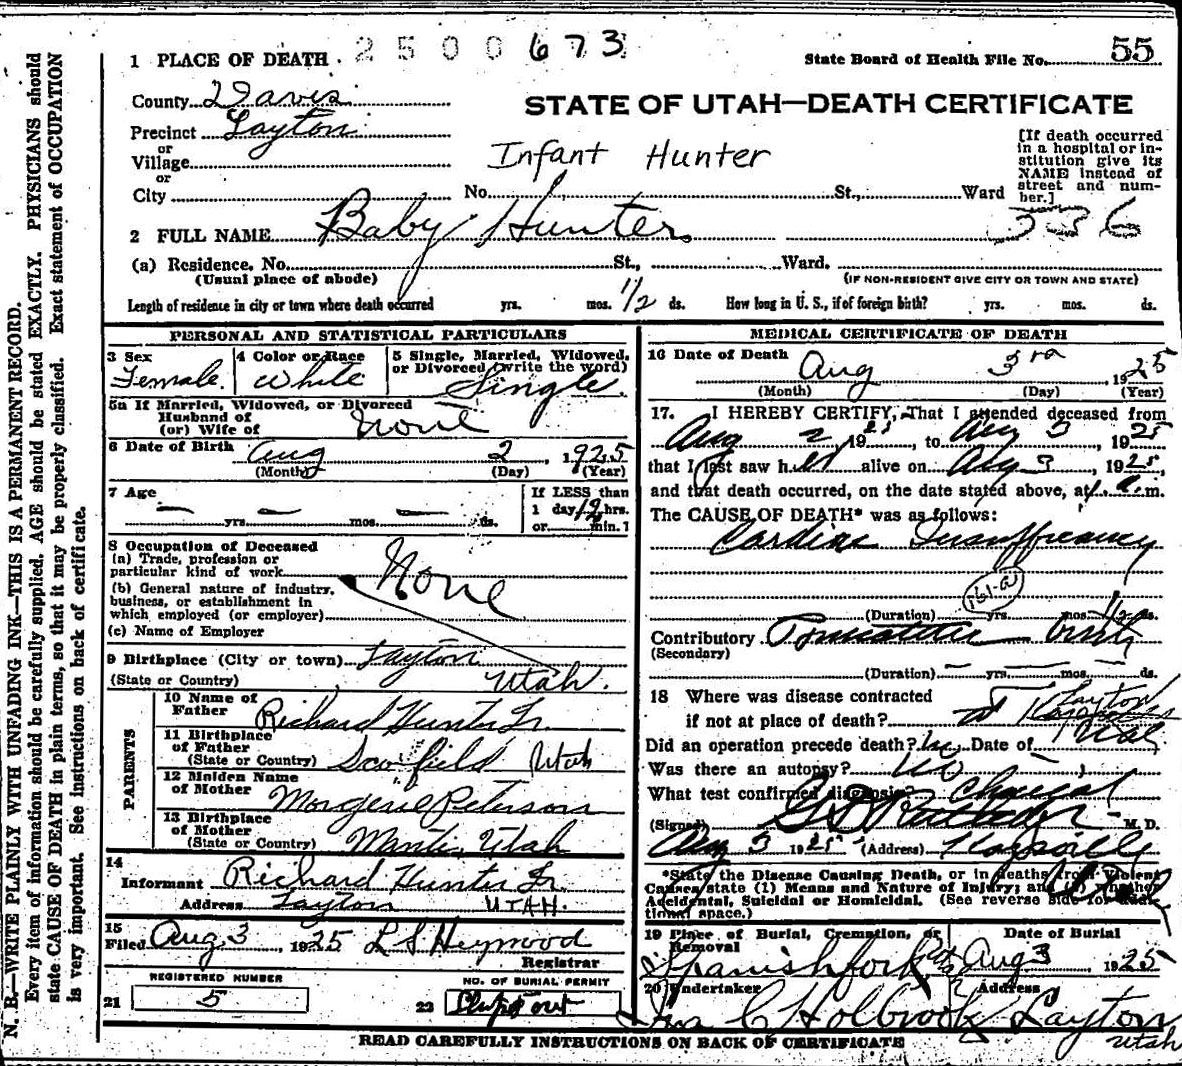 2500673
1 PLACE OF DEATH
State Board of Health File No. 55
County Davis
STATE OF UTAH—DEATH CERTIFICATE
Precinct Layton
or
Village
Infant Hunter
[If death occurred in a hospital or institution give its NAME instead of street and number.]
or
City No. St., Ward
336
2 FULL NAME Baby Hunter
(a) Residence. No. St., Ward.
(Usual place of abode) (IF NON-RESIDENT GIVE CITY OR TOWN AND STATE)
Length of residence in city or town where death occurred yrs. mos. 1/2 ds. How long in U. S., if of foreign birth? yrs. mos. ds.
PERSONAL AND STATISTICAL PARTICULARS
3 Sex
Female
4 Color or Race
White
5 Single, Married, Widowed,
or Divorced (write the word)
Single
5a If Married, Widowed, or Divorced
Husband of
(or) Wife of None
6 Date of Birth Aug 2, 1925
(Month) (Day) (Year)
7 Age — — —
yrs. mos. ds.
If LESS than
1 day 12 hrs.
or min.
8 Occupation of Deceased
(a) Trade, profession or
particular kind of work None
(b) General nature of industry,
business, or establishment in
which employed (or employer)
(c) Name of Employer
9 Birthplace (City or town) Layton
(State or Country) Utah.
PARENTS
10 Name of
Father Richard Hunter Jr.
11 Birthplace
of Father
(State or Country) Scofield Utah
12 Maiden Name
of Mother Peterson
13 Birthplace
of Mother
(State or Country) Manti, Utah
14
Informant Richard Hunter Jr.
Address Layton UTAH.
15
Filed Aug. 3 1925 L S Heywood
Registrar
REGISTERED NUMBER
21 5
NO. OF BURIAL PERMIT
22
MEDICAL CERTIFICATE OF DEATH
16 Date of Death Aug 3rd, 1925
(Month) (Day) (Year)
17. I HEREBY CERTIFY, That I attended deceased from
Aug 2 1925, to Aug 3, 1925
that I last saw her alive on Aug 3, 1925,
and that death occurred, on the date stated above, at m.
The CAUSE OF DEATH* was as follows:
Cardiac Insufficiency
161-a
(Duration) yrs. mos. 1/2 ds.
Contributory
(Secondary)
(Duration) — yrs. — mos. — ds.
18 Where was disease contracted
if not at place of death? Layton
Utah
Did an operation precede death? No Date of
Was there an autopsy? No
What test confirmed diagnosis?
(Signed) M. D.
Aug 3 1925 (Address) Kaysville
Utah
*State the Disease Causing Death, or in deaths from Violent
Causes state (1) Means and Nature of Injury; and (2) whether
Accidental, Suicidal or Homicidal. (See reverse side for additional space.)
19 Place of Burial, Cremation, or
Removal
Date of Burial
Spanish fork Aug 3 1925
20 Undertaker Address
Holbrook Layton
Utah
READ CAREFULLY INSTRUCTIONS ON BACK OF CERTIFICATE
N. B.—WRITE PLAINLY WITH UNFADING INK—THIS IS A PERMANENT RECORD.
Every item of information should be carefully supplied. AGE should be stated EXACTLY. PHYSICIANS should
state CAUSE OF DEATH in plain terms, so that it may be properly classified. Exact statement of OCCUPATION
is very important. See instructions on back of certificate.